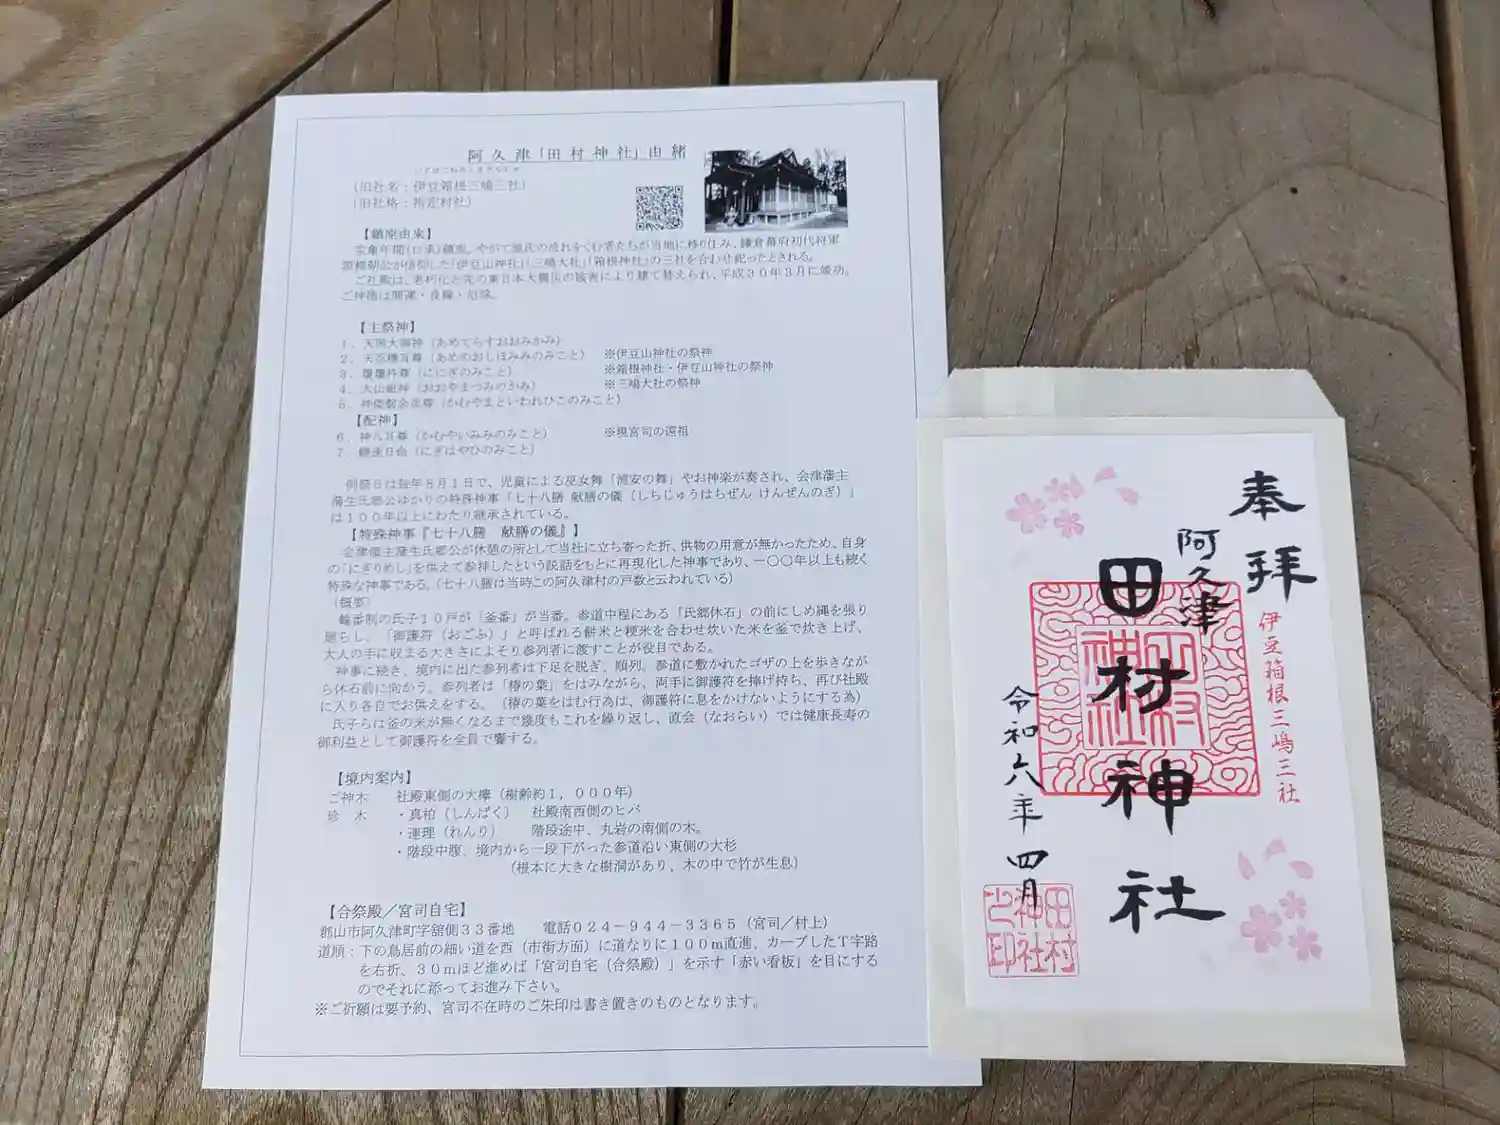 阿久津「田村神社」由緒
（旧社名：伊豆箱根三嶋三社）
（旧社格：指定村社）
【鎮座由来】
宝亀年間（口承）鎮座。やがて源氏の流れをくむ者たちが当地に移り住み、鎌倉幕府初代将軍
源頼朝公が信仰した「伊豆山神社」「三嶋大社」「箱根神社」の三社を合わせ祀ったとされる。
ご社殿は、老朽化と先の東日本大震災の被害により建て替えられ、平成３０年３月に竣功。
ご神徳は開運・良縁・厄除。
【主祭神】
１、天照大御神（あめてらすおおみかみ）
２、天忍穂耳尊（あめのおしほみみのみこと）　※伊豆山神社の祭神
３、瓊瓊杵尊（ににぎのみこと）　※箱根神社・伊豆山神社の祭神
４、大山祇神（おおやまつみのかみ）　※三嶋大社の祭神
５、神倭磐余彦尊（かむやまといわれひこのみこと）
【配神】
６、神八耳尊（かむやいみみのみこと）　※現宮司の遠祖
７、饒速日命（にぎはやひのみこと）
例祭日は毎年８月１日で、児童による巫女舞「浦安の舞」やお神楽が奏され、会津藩主
蒲生氏郷公ゆかりの特殊神事「七十八膳 献膳の儀（しちじゅうはちぜん けんぜんのぎ）」
は１００年以上にわたり継承されている。
【特殊神事『七十八膳　献膳の儀』】
会津藩主蒲生氏郷公が休憩の所として当社に立ち寄った折、供物の用意が無かったため、自身
の「にぎりめし」を供えて参拝したという説話をもとに再現化した神事であり、一〇〇年以上も続く
特殊な神事である。（七十八膳は当時この阿久津村の戸数と云われている）
（概要）
輪番制の氏子１０戸が「釜番」が当番。参道中程にある「氏郷休石」の前にしめ縄を張り
廻らし、「御護符（おごふ）」と呼ばれる餅米と粳米を合わせ炊いた米を釜で炊き上げ、
大人の手に収まる大きさによそり参列者に渡すことが役目である。
神事に続き、境内に出た参列者は下足を脱ぎ、順列。参道に敷かれたゴザの上を歩きなが
ら休石前に向かう。参列者は「樽の葉」をはみながら、両手に御護符を捧げ持ち、再び社殿
に入り各自でお供えをする。（樽の葉をはむ行為は、御護符に息をかけないようにする為）
氏子らは釜の米が無くなるまで幾度もこれを繰り返し、直会（なおらい）では健康長寿の
御利益として御護符を全員で饗する。
【境内案内】
ご神木　社殿東側の大欅（樹齢約１，０００年）
珍　木　・真柏（しんぱく）　社殿南西側のヒバ
・連理（れんり）　階段途中、丸岩の南側の木。
・階段中腹、境内から一段下がった参道沿い東側の大杉
（根本に大きな樹洞があり、木の中で竹が生息）
【合祭殿／宮司自宅】
郡山市阿久津町字舘側３３番地　電話０２４－９４４－３３６５（宮司／村上）
道順：下の鳥居前の細い道を西（市街方面）に道なりに１００ｍ直進、カーブしたＴ字路
を右折、３０ｍほど進めば「宮司自宅（合祭殿）」を示す「赤い看板」を目にする
のでそれに添ってお進み下さい。
※ご祈願は要予約、宮司不在時のご朱印は書き置きのものとなります。
奉拝
伊豆箱根三嶋三社
阿久津
田村神社
令和六年四月
田村神社
田村神社之印